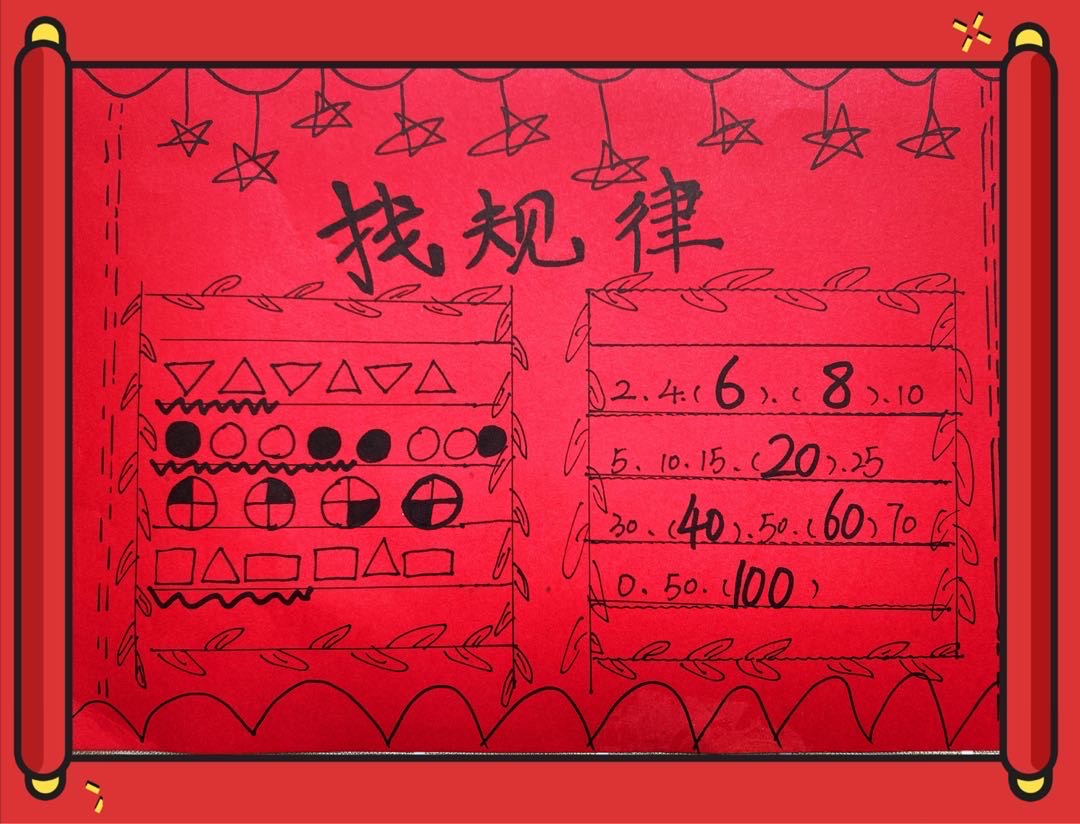 找规律
2、4、(6)、(8)、10
5、10、15、(20)、25
30、(40)、50、(60)70
0、50、(100)